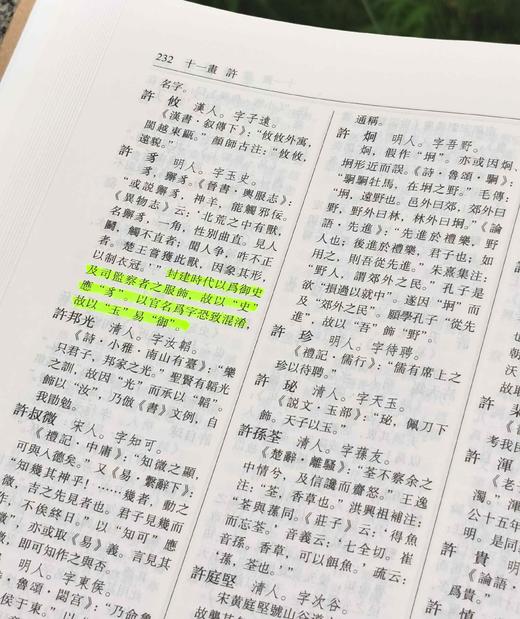 232 十一畫 許
名字。
許 攸 漢人。字子遠。
《漢書·叙傳下》：“攸攸外寓，
閩越東甌。”顔師古注：“攸攸，
遠貌。”
許 豸 明人。字玉史。
豸，獬豸。《晉書·輿服志》：
“或説獬豸，神羊，能觸邪佞。
《異物志》云：‘北荒之中有獸，
名獬豸，一角，性别曲直。見人
鬭，觸不直者；聞人争，咋不正
者。楚王嘗獲此獸，因象其形，
以制衣冠。’”封建時代以爲御史
及司監察者之服飾，故以“史”
應“豸”。以官名爲字恐致混淆，
故以“玉”易“御”。
許邦光 清人。字汝韜。
《詩·小雅·南山有臺》：“樂
只君子，邦家之光。”聖賢有韜光
之訓，故因“光”而承以“韜”。
飾以“汝”，乃倣《書》文例，自
我勖勉。
許叔微 宋人。字知可。
《禮記·中庸》：“知微之顯，
可與入德矣。”又《易·繫辭下》：
“知幾其神乎！……幾者，動之
微，吉之先見者也。君子見幾而
作，不俟終日。”以“知可”應
微”，亦或取《易》義。言見其
微，即可知作之與否。
明人。字東侯。
魯頌·閟宫》：“乃命魯
侯于東。”以“
通稱。
許 炯 明人。字吾野。
炯，假作“坰”。亦或因炯、
坰形近而誤。《詩·魯頌·駉》：
“駉駉牡馬，在坰之野。”毛傳：
“坰，遠野也。邑外曰郊，郊外曰
野，野外曰林，林外曰坰。”《論
語·先進》：“先進於禮樂，野
人也；後進於禮樂，君子也；如
用之，則吾從先進。”朱熹集注：
“野人，謂郊外之民。”孔子是
欲“損過以就中”。遂因“坰”而
及“郊外之民”。願學孔子“從先
進”，故以“吾”飾“野”。
許 珍 明人。字待聘。
《禮記·儒行》：“儒有席上之
珍以待聘。”
許 珌 清人。字天玉。
《説文·玉部》：“珌，佩刀下
飾。天子以玉。”
許孫荃 清人。字蓀友。
《楚辭·離騷》：“荃不察余之
中情兮，反信讒而齌怒。”王逸
注：“荃，香草也。”洪興祖補注：
“荃與蓀同。《莊子》云：‘得魚
而忘荃。’音義云：‘七全切。崔
音孫。香草，可以餌魚。’疏云：
‘蓀，荃也。’”
許庭堅 清人。字次谷。
宋黄庭堅號山谷
故襲其
許
考我
許 渾
《老
濁。”渾
公十五年
明。是同
許 貴
《論語·
爲貴。”
許 慎